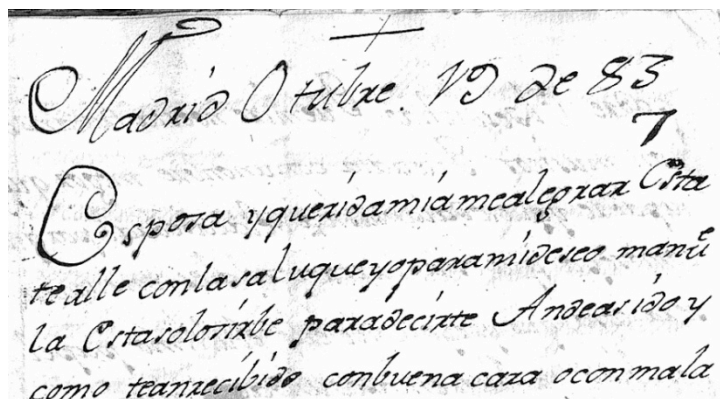 Madrid Otubre. 19 de 83
7
Esposa yqueridamiamealegrar Esta
tealle conlasaluqueyoparamideseo manue
la Estasolosirbe paradecirte Andeasido y
como teanrecibido conbuena cara oconmala